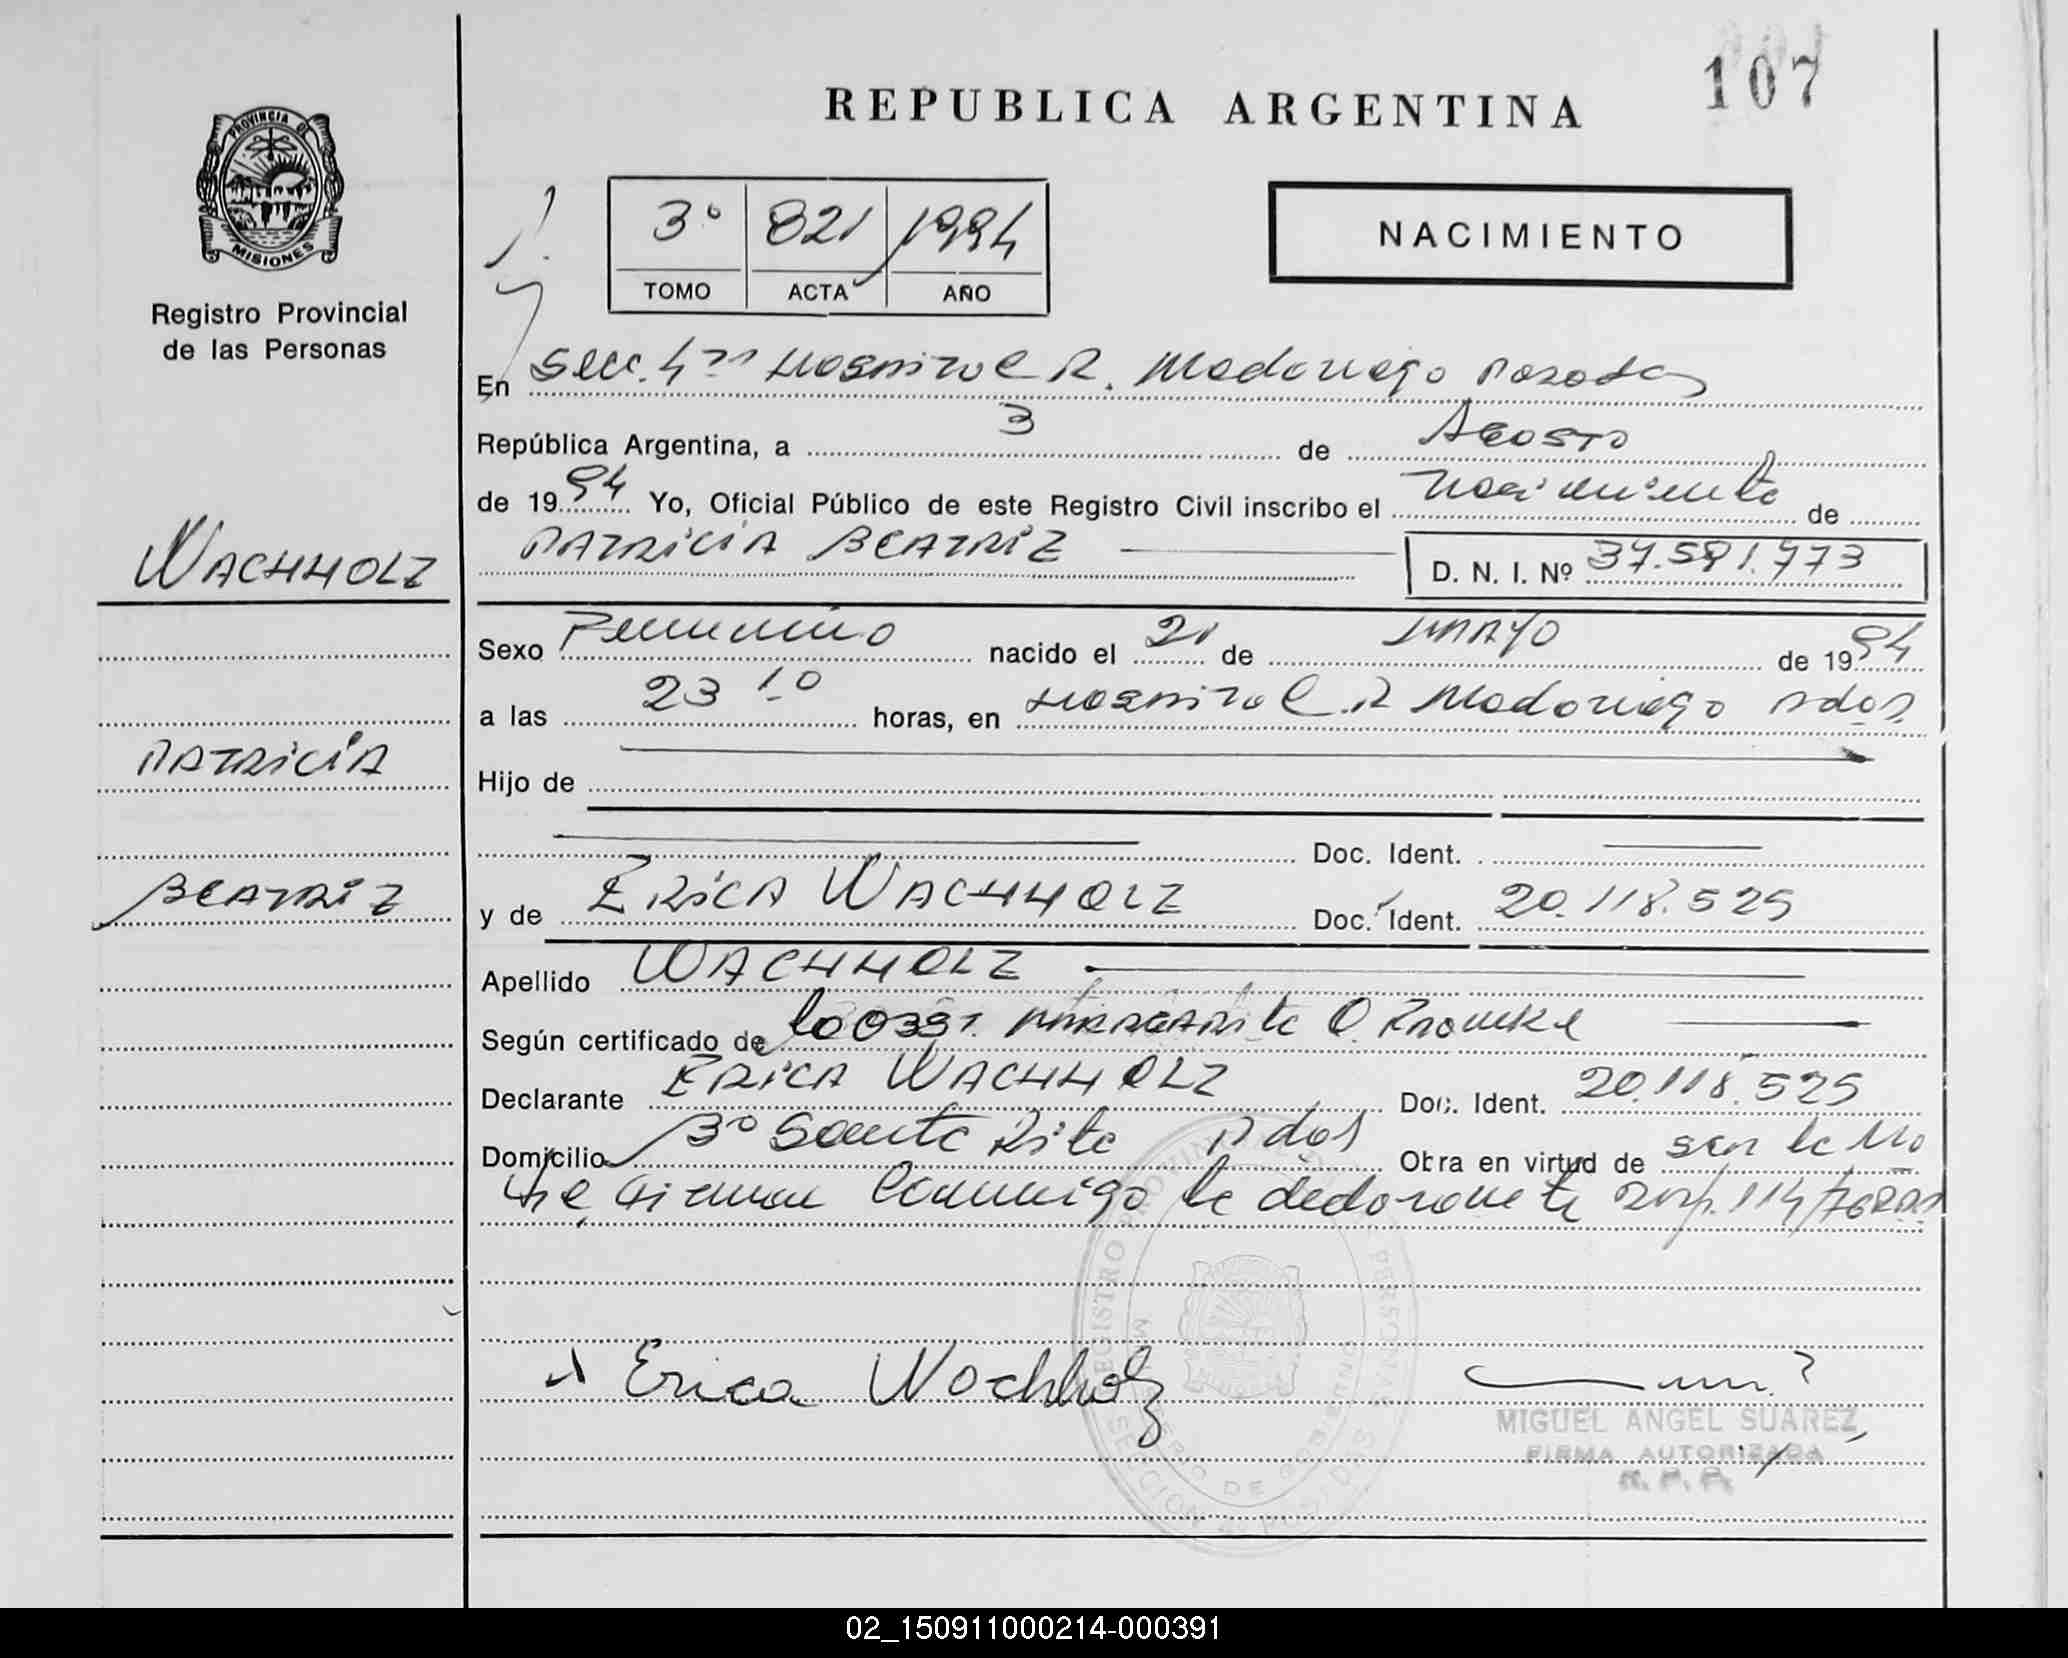 107
REPUBLICA ARGENTINA
PROVINCIA DE
MISIONES
Registro Provincial
de las Personas
3º 821 1994
TOMO ACTA AÑO
NACIMIENTO
En Secc. 4ta Hospital R. Madariaga Posadas
República Argentina, a 3 de Agosto
de 1994 Yo, Oficial Público de este Registro Civil inscribo el nacimiento de
WACHHOLZ
PATRICIA BEATRIZ D. N. I. Nº 37.591.773
Sexo Femenino nacido el 21 de MAYO de 1994
a las 23 10 horas, en Hospital R Madariaga Pdas.
PATRICIA
Hijo de
Doc. Ident.
BEATRIZ
y de ERICA WACHHOLZ Doc. Ident. 20.118.525
Apellido WACHHOLZ
Según certificado de MARGARITA O.
Declarante ERICA WACHHOLZ Doc. Ident. 20.118.525
Domicilio Bº Santa Rita Pdas Obra en virtud de ser la Ma
dre, Firman Conmigo la declarante
Erica Wachholz
MIGUEL ANGEL SUAREZ
FIRMA AUTORIZADA
R. P. P.
REGISTRO PROVINCIAL DE LAS PERSONAS
MINISTERIO DE GOBIERNO
SECCION 4ª POSADAS
02_150911000214-000391